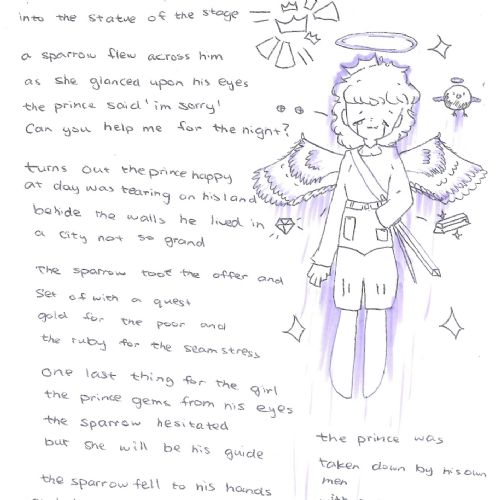 into the statue of the stage
a sparrow flew across him
as she glanced upon his eyes
the prince said 'im sorry'
Can you help me for the night?
turns out the prince happy
at day was tearing on his land
behide the walls he lived in
a city not so grand
The sparrow toot the offer and
Set of with a quest
gold for the poor and
the ruby for the seamstress
one last thing for the girl
the prince gems from his eyes
the sparrow hesitated
but she will be his guide
the sparrow fell to his hands
the prince was
taken down by his own
men